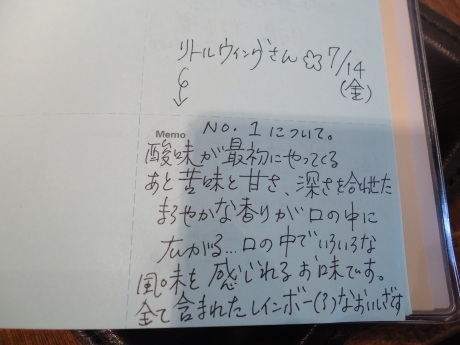 リトルウィングさん 7/14
(金)
Memo No.1について。
酸味が最初にやってくる
あと苦味と甘さ、深さを合わせた
まろやかな香りが口の中に
広がる…口の中でいろいろな
風味を感じれるお味です。
全て含まれたレインボー(?)なおいしさです